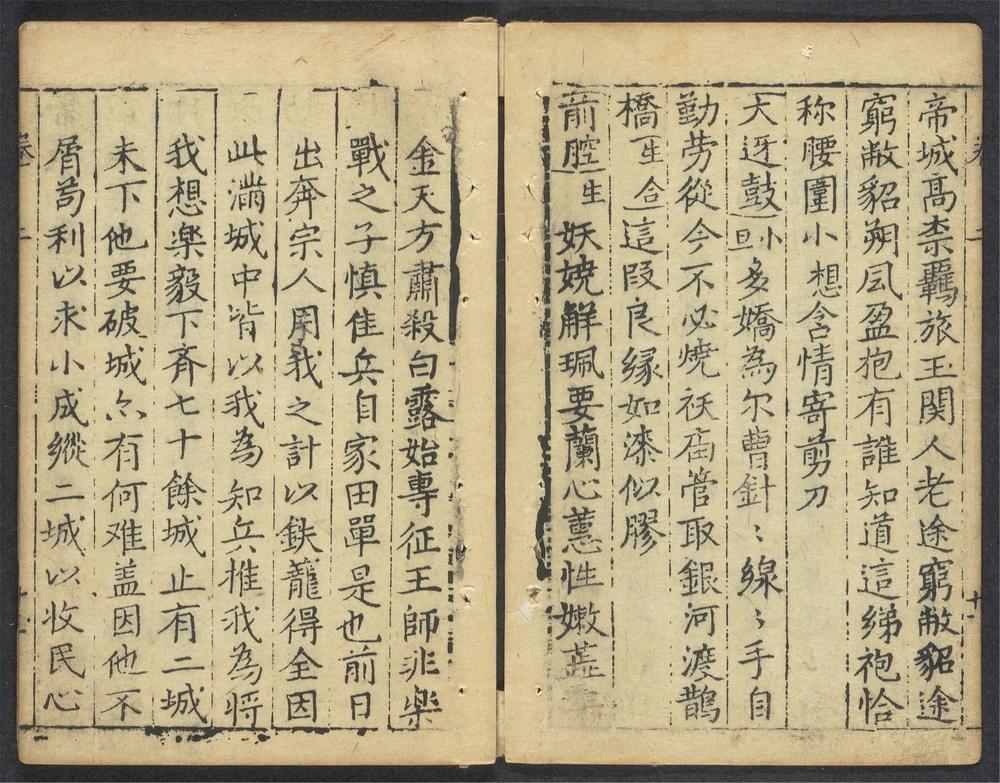 帝城高柰羈旅玉関人老途窮敝貂途
窮敝貂朔風盈抱有誰知道這綈袍恰
称腰圍小想含情寄剪刀
大迓鼓旦小多嬌為尔曹針〻線〻手自
勤劳從今不必焼祆庙管取銀河渡鵲
橋生合這段良縁如漆似膠
前腔生妖嬈觧珮要蘭心蕙性嫩蕋
金天方肅殺白露始專征王師非楽
戰之子慎佳兵自家田單是也前日
出奔宗人用我之計以鉄籠得全因
此滿城中皆以我為知兵推我為将
我想楽毅下斉七十餘城止有二城
未下他要破城亦有何难盖因他不
屑苟利以求小成縱二城以收民心